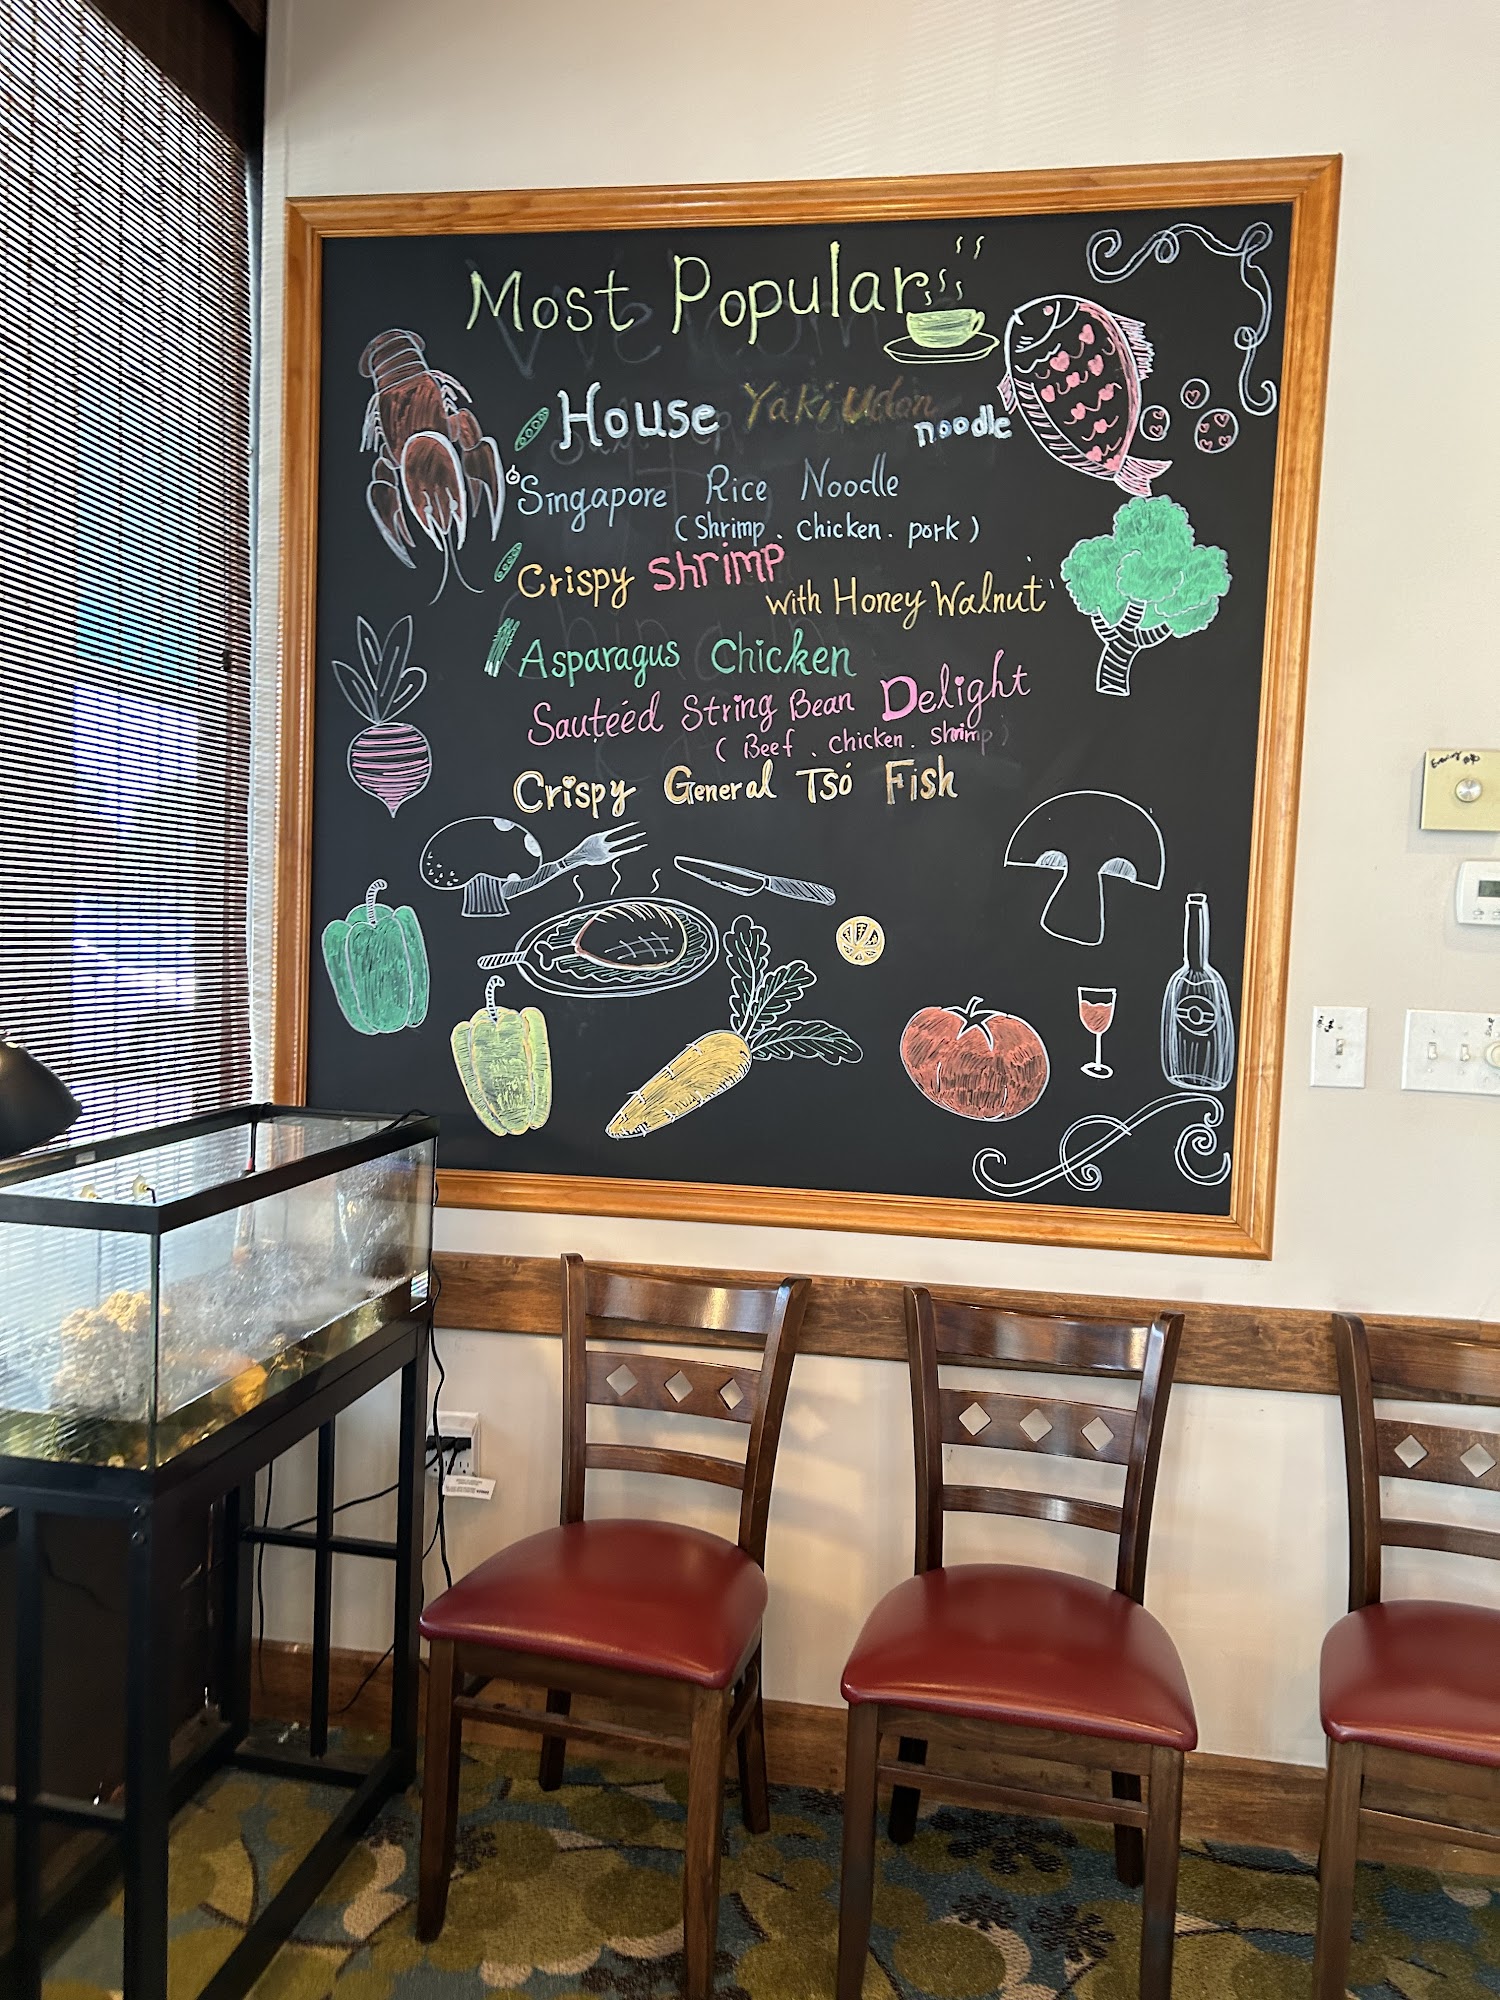 Most Popular
House Yaki Udon noodle
Singapore Rice Noodle
(Shrimp. Chicken. pork)
Crispy Shrimp
with Honey Walnut
Asparagus Chicken
Sauteéd String Bean Delight
(Beef. Chicken. Shrimp)
Crispy General Tsó Fish